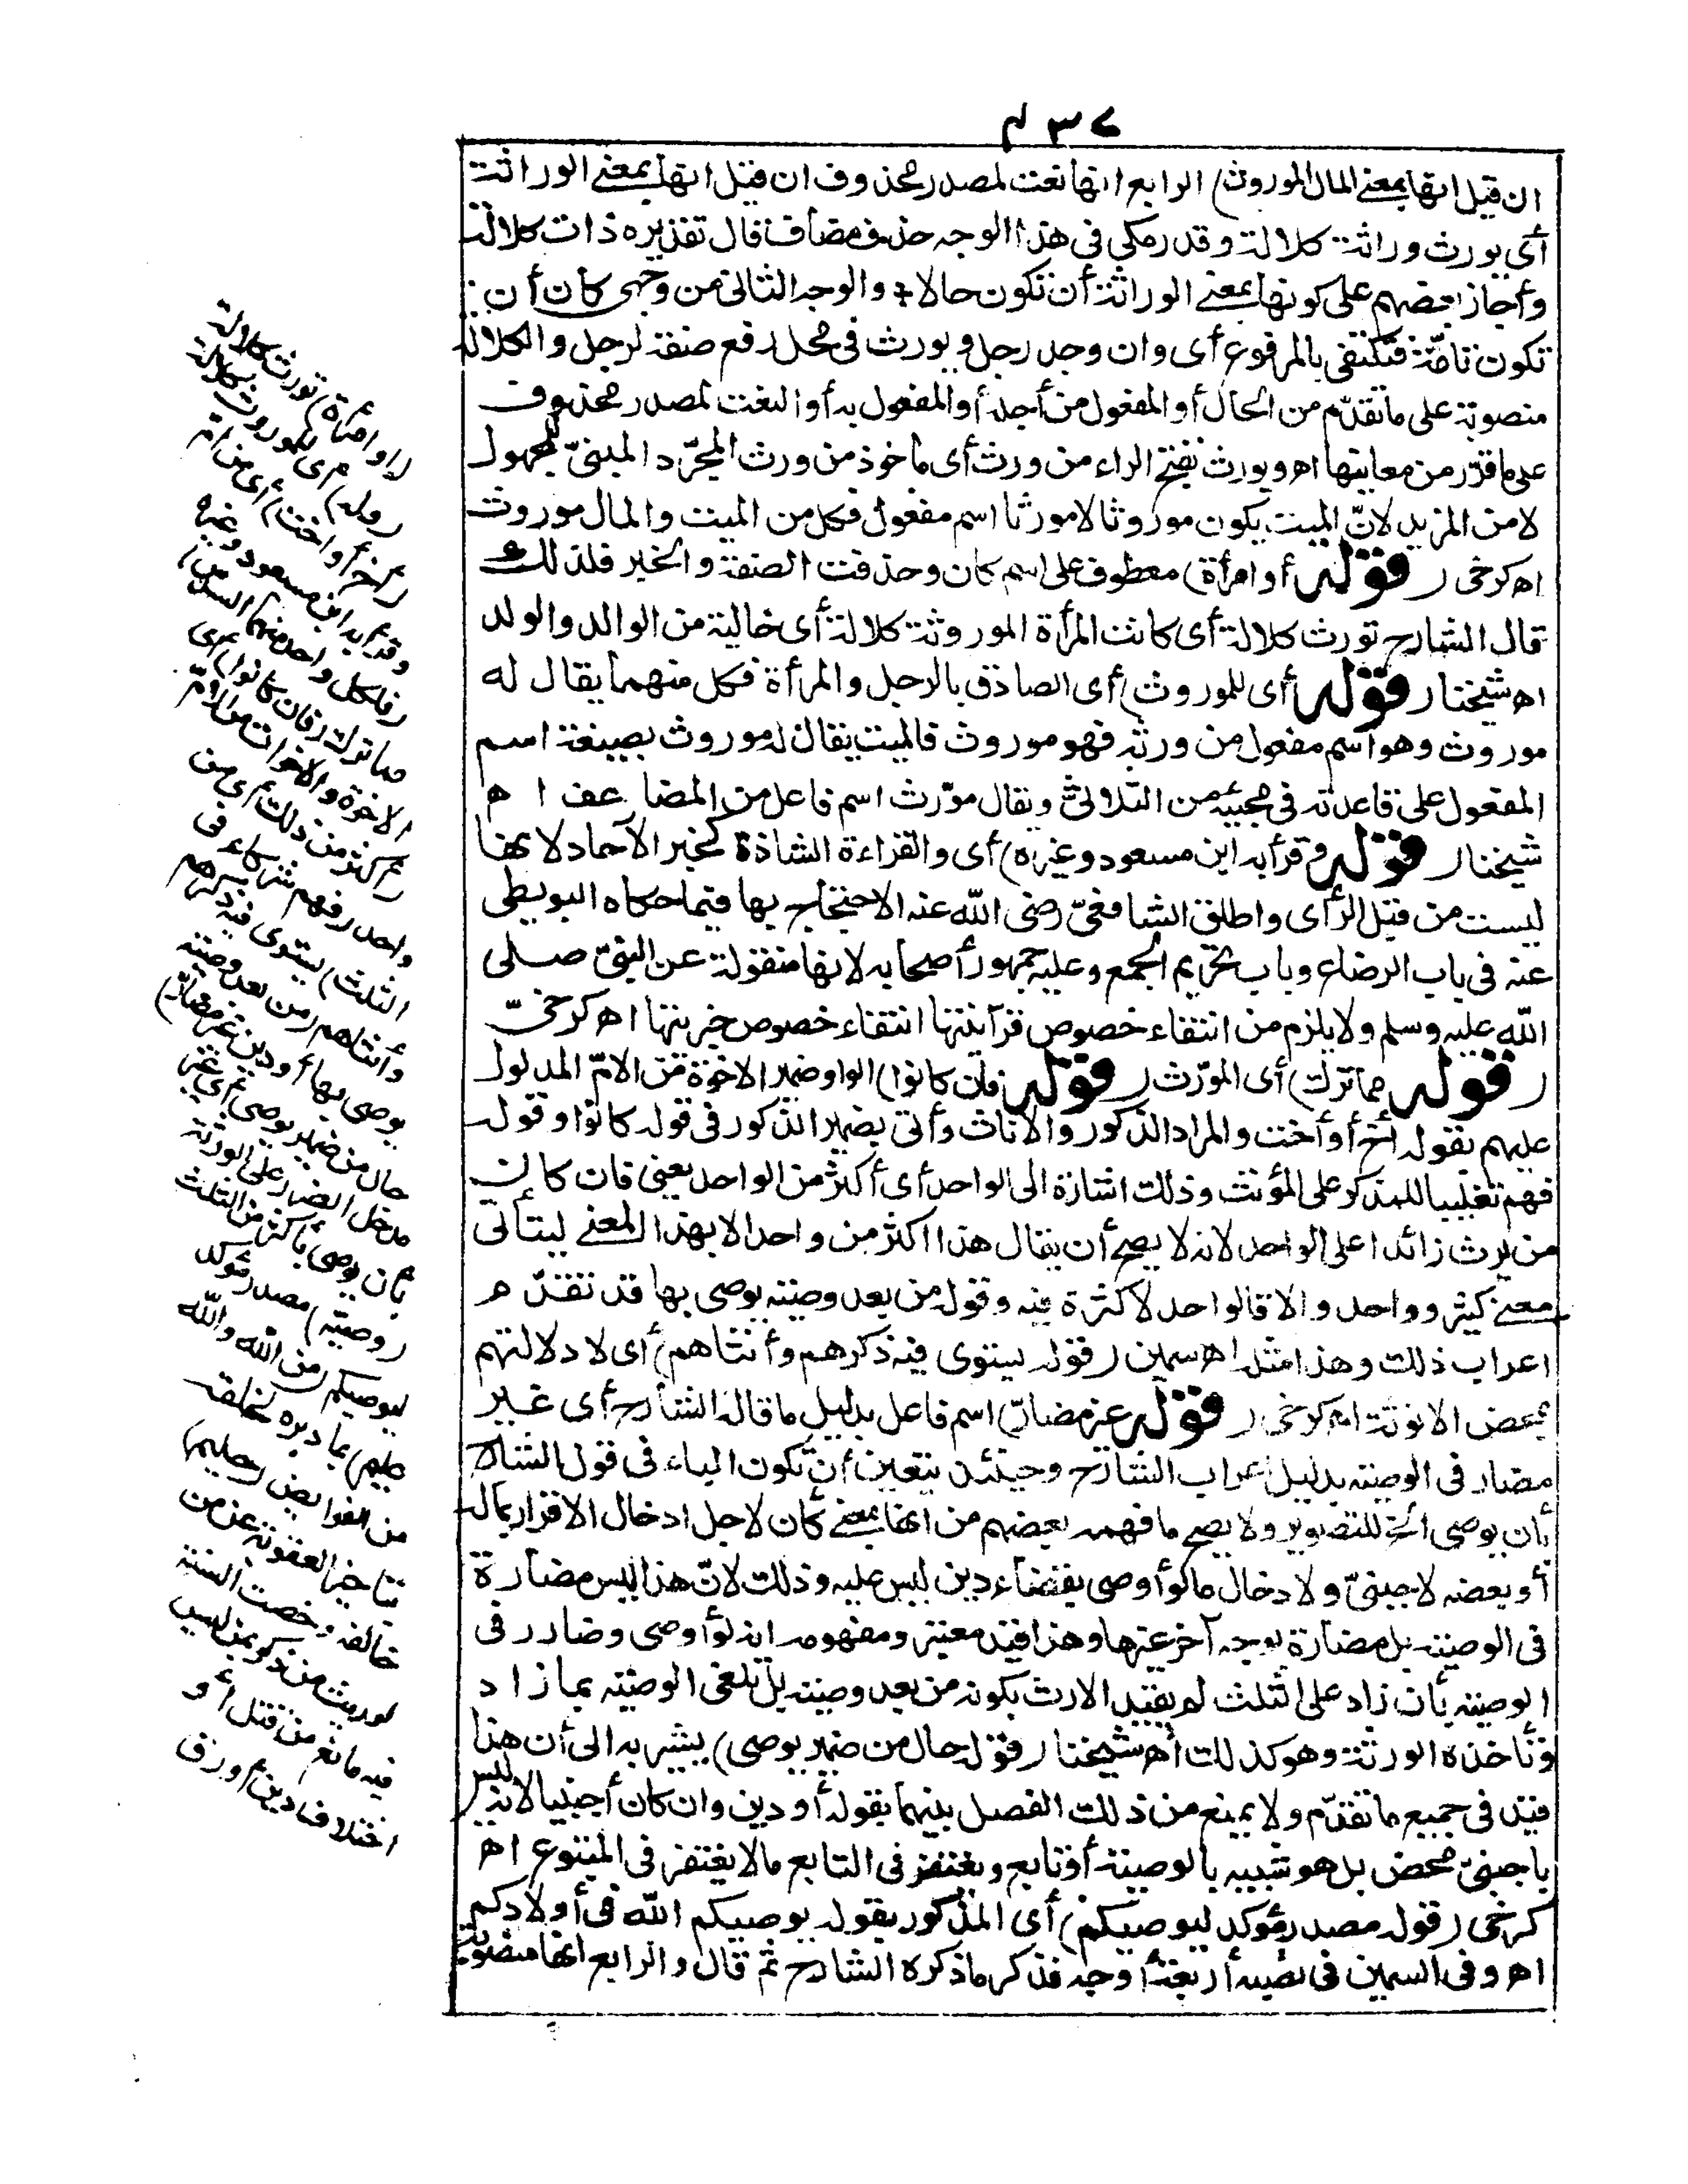 ٤٣٧
ان قيل انها بمعنى المال الموروث) الرابع انها نعت لمصدر محذوف ان قيل انها بمعنى الوراثة
أى يورث وراثة كلالة وقدر مكى فى هذا الوجه حذف مضاف قال تقديره ذات كلالة
وأجاز بعضهم على كونها بمعنى الوراثة أن تكون حالا والوجه الثانى من وجهى كان أن
تكون تامّة فتكتفى بالمرفوع أى وان وجد رجل ويورث فى محل رفع صفة لرجل والكلالة
منصوبة على ما تقدّم من الحال أو المفعول من أجله أو المفعول به أو النعت لمصدر محذوف
على ما قدّر من معانيها اه ويورث بفتح الراء من ورث أى مأخوذ من ورث المجرّد المبنىّ للمجهول
لا من المزيد لانّ الميت يكون موروثا لا مورثا اسم مفعول فكل من الميت والمال موروث
اه كرخى (قوله أو امرأة) معطوف على اسم كان وحذفت الصفة والخبر فلذلك
قال الشارح تورث كلالة أى كانت المرأة الموروثة كلالة أى خالية من الوالد والولد
اه شيخنا (قوله أى للموروث) أى الصادق بالرجل والمرأة فكل منهما يقال له
موروث وهو اسم مفعول من ورثه فهو موروث فالميت يقال له موروث بصيغة اسم
المفعول على قاعدته فى مجيئه من الثلاثى ويقال مورّث اسم فاعل من المضاعف اه
شيخنا (قوله وقرأ به ابن مسعود وغيره) أى والقراءة الشاذة كخبر الآحاد لانها
ليست من قبل الرأى واطلق الشافعىّ رضى الله عنه الاحتجاج بها فيما حكاه البويطى
عنه فى باب الرضاع وباب تحريم الجمع وعليه جمهور أصحابه لانها منقولة عن النبىّ صلى
الله عليه وسلم ولا يلزم من انتفاء خصوص قرآنيتها انتفاء خصوص خبريتها اه كرخىّ
(قوله مما ترك) أى المورّث (قوله فان كانوا) الواو ضمير الاخوة من الامّ المدلول
عليهم بقوله أخ أو أخت والمراد الذكور والاناث وأتى بضمير الذكور فى قوله كانوا وقوله
فهم تغليبا للمذكر على المؤنث وذلك اشارة الى الواحد أى أكثر من الواحد يعنى فان كان
من يرث زائدا على الواحد لانه لا يصح أن يقال هذا اكثر من واحد الا بهذا المعنى ليتأتى
معنى كثير وواحد والا فالواحد لا كثرة فيه وقوله من بعد وصية يوصى بها قد تقدّم
اعراب ذلك وهذا مثله اه سمين (قوله يستوى فيه ذكرهم وأنثاهم) أى لادلالتهم
بمحض الانوثة اه كرخى (قوله غير مضارّ) اسم فاعل بدليل ما قاله الشارح أى غير
مضار فى الوصية بدليل اعراب الشارح وحينئذ يتعين أن تكون الباء فى قول الشارح
بأن يوصى الخ للتصوير ولا يصح ما فهمه بعضهم من انها بمعنى كأن لاجل ادخال الاقرار بماله
أو بعضه لاجنبىّ ولادخال ما لو أوصى بقضاء دين ليس عليه وذلك لانّ هذا ليس مضارة
فى الوصية بل مضارة بوجه آخر غيرها وهذا قيد معتبر ومفهومه انه لو أوصى وضارر فى
الوصية بأن زاد على الثلث لم يقيد الارث بكونه من بعد وصية بل تلغى الوصية بما زاد
وتأخذه الورثة وهو كذلك اه شيخنا (قوله حال من ضمير يوصى) يشير به الى أن هذا
قيد فى جميع ما تقدّم ولا يمنع من ذلك الفصل بينهما بقوله أو دين وان كان أجنبيا لانه ليس
باجنبىّ محض بل هو شبيه بالوصية أو تابع ويغتفر فى التابع مالا يغتفر فى المتبوع اه
كرخى (قوله مصدر مؤكد ليوصيكم) أى المذكور بقوله يوصيكم الله فى أولادكم
اه وفى السمين فى نصبه أربعة أوجه فذكر ما ذكره الشارح ثم قال والرابع انها منصوبة
(أو امرأة) تورث كلالة
(وله) أى للموروث كلالة
(أخ أو أخت) أى من أمّ
وقرأ به ابن مسعود وغيره
(فلكل واحد منهما السدس)
مما ترك (فان كانوا) أى
الاخوة والاخوات من الامّ
(أكثر من ذلك) أى من
واحد (فهم شركاء فى
الثلث) يستوى فيه ذكرهم
وأنثاهم (من بعد وصية
يوصى بها أو دين غير مضارّ)
حال من ضمير يوصى أى غير
مدخل الضرر على الورثة
بأن يوصى بأكثر من الثلث
(وصية) مصدر مؤكد
ليوصيكم (من الله والله
عليم) بما دبره لخلقه
من الفرائض (حليم)
بتأخير العقوبة عن من
خالفه وخصت السنة
توريث من ذكر بمن ليس
فيه مانع من قتل أو
اختلاف دين أو رق